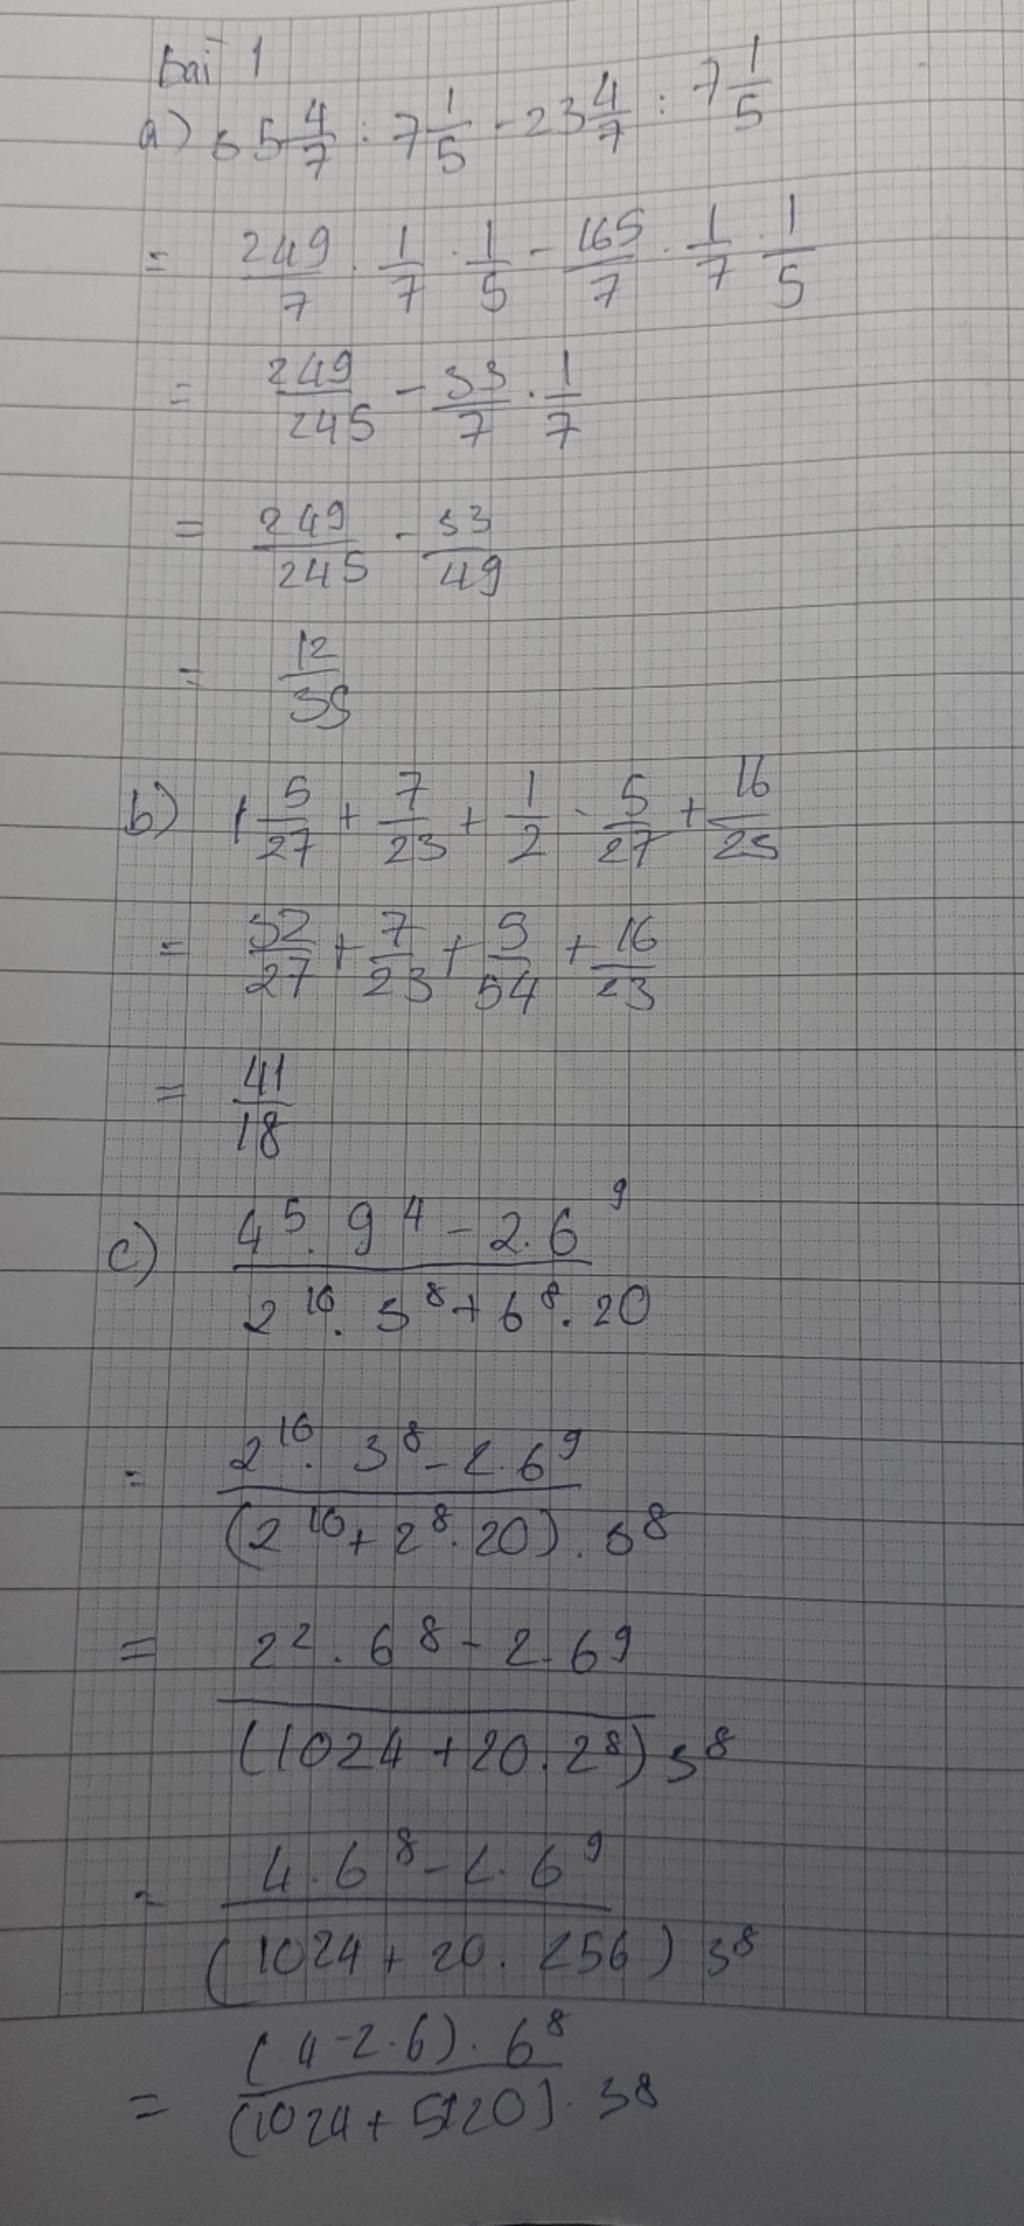 bài 1
a) 35 4/7 : 7 1/5 - 23 4/7 : 7 1/5
= 249/7 . 1/7 . 1/5 - 165/7 . 1/7 . 1/5
= 249/245 - 33/7 . 1/7
= 249/245 - 33/49
= 12/35
b) 1 5/27 + 7/23 + 1/2 - 5/27 + 16/23
= 32/27 + 7/23 + 5/54 + 16/23
= 41/18
c) (4^5 . 9^4 - 2.6^9)/(2^10 . 3^8 + 6^8 . 20)
= (2^10 . 3^8 - 2.6^9)/((2^10 + 2^8 . 20) . 3^8)
= (2^2 . 6^8 - 2.6^9)/((1024 + 20 . 2^8) 3^8)
= (4.6^8 - 2.6^9)/((1024 + 20 . 256) 3^8)
= ((4-2.6) . 6^8)/((1024 + 5120) . 3^8)